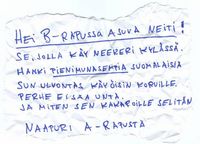 HEI B-RAPUSSA ASUVA NEITI!
SE, JOLLA KÄY NEEKERI KYLÄSSÄ.
HANKI PIENIMUNASEMPIA SUOMALAISIA
SUN ULVONTAS KÄY ÖISIN KORVILLE.
PERHE EI SAA UNTA.
JA MITEN SEN KAKAROILLE SELITÄN
NAAPURI A-RAPUSTA